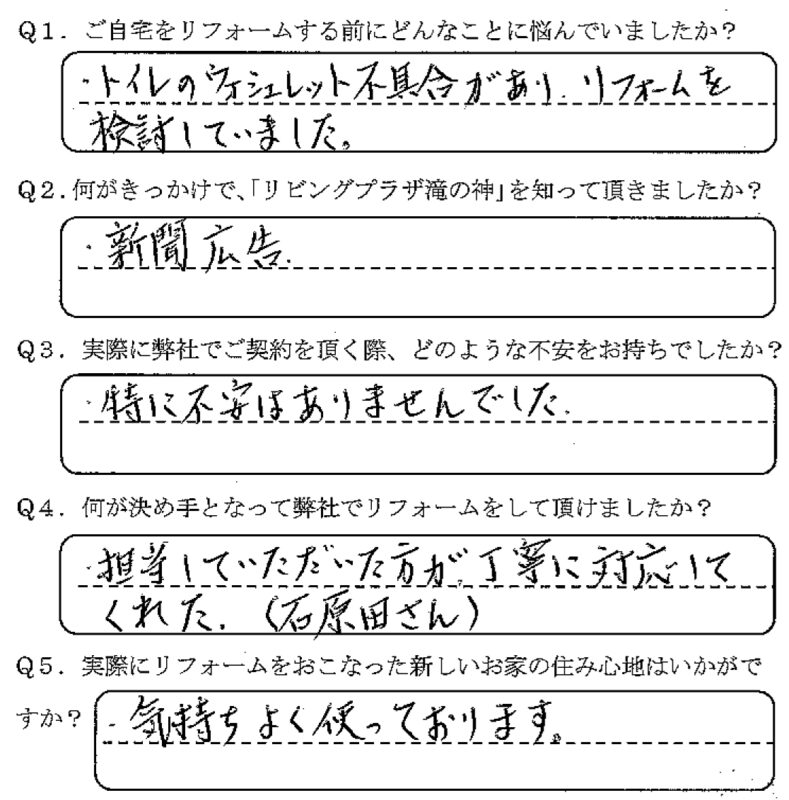 Q1. ご自宅をリフォームする前にどんなことに悩んでいましたか?
・トイレのウォシュレット不具合があり、リフォームを
検討していました。
Q2.何がきっかけで、「リビングプラザ滝の神」を知って頂きましたか?
・新聞広告.
Q3. 実際に弊社でご契約を頂く際、どのような不安をお持ちでしたか?
・特に不安はありませんでした.
Q4. 何が決め手となって弊社でリフォームをして頂けましたか?
・担当していただいた方が、丁寧に対応して
くれた.(石原田さん)
Q5. 実際にリフォームをおこなった新しいお家の住み心地はいかがで
すか?
・気持ちよく使っております。